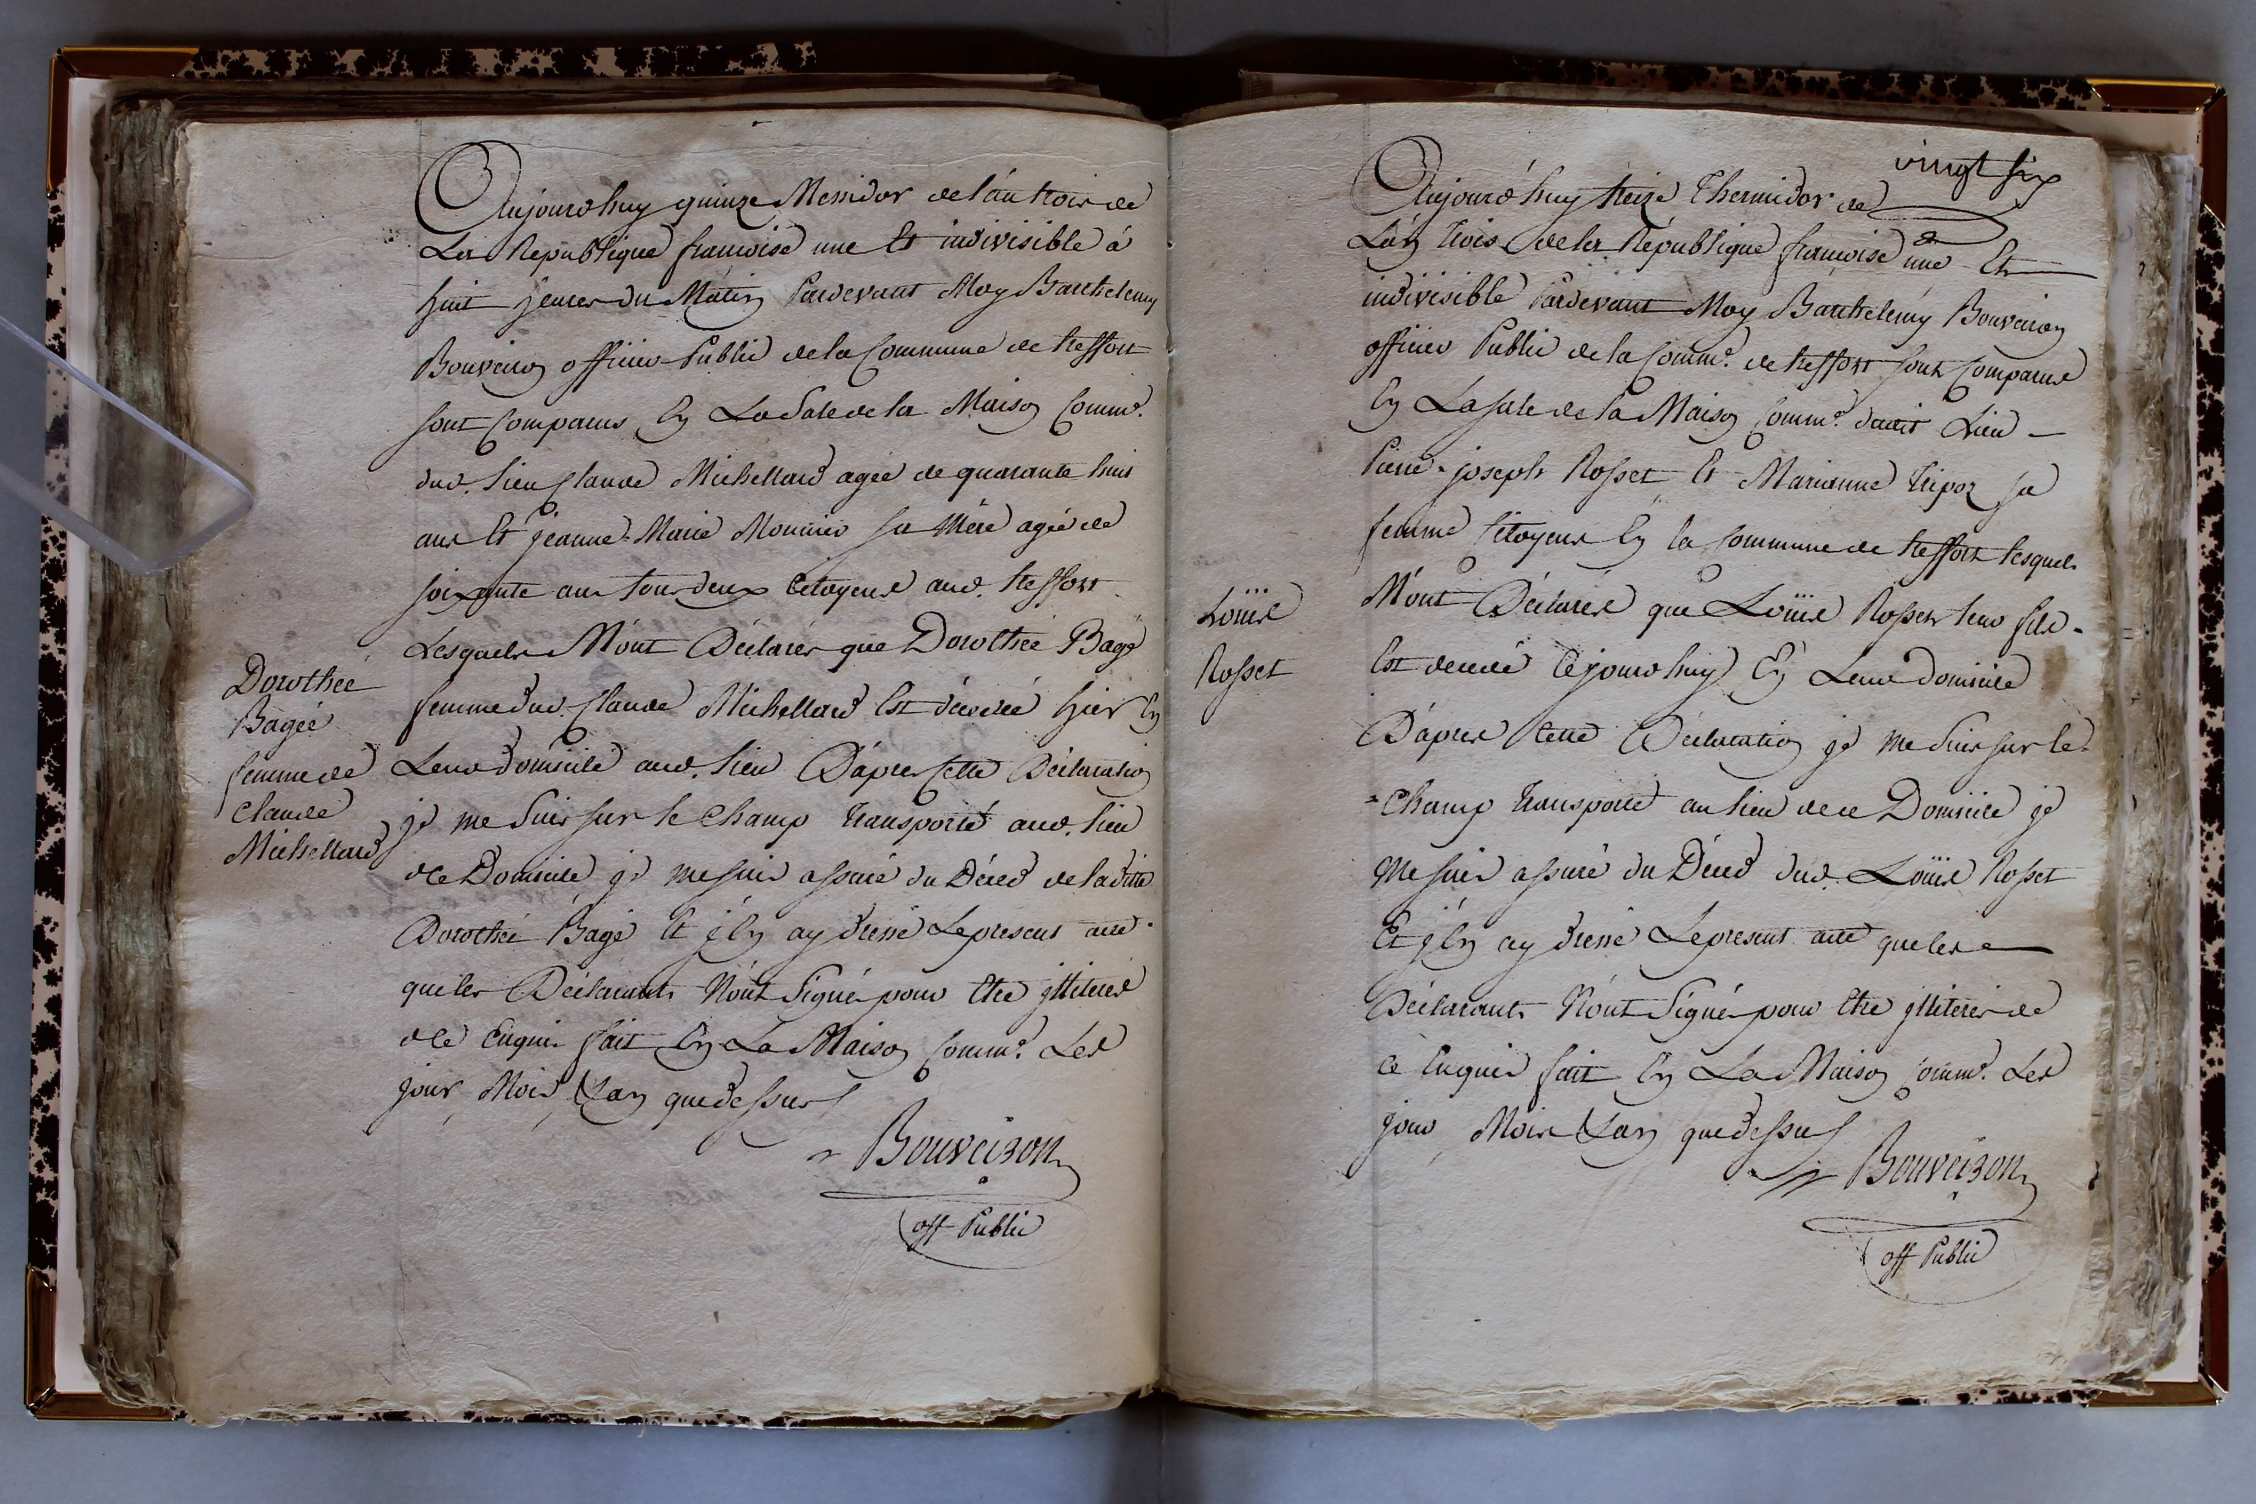 Aujourdhuy quinze Messidor de l'an trois de
La Republique francoise une Et indivisible á
huit heures du Matin Pardevant Moy Barthelemy
Bouveiron officier Public de la Commune de treffort
sont Comparus En La Sale de la Maison Comme.
dud. lieu Claude Michellard agée de quarante huit
ans Et jeanne-Marie Monnier sa Mére agée de
soixante ans tous deux Citoyens aud. treffort
Lesquels M'ont Déclarés que Dorothée Bagé
femme dud. Claude Michellard Est décedée hier En
Leur domicile aud. lieu D'apres Cette Déclaration
je me suis sur le Champ transporté aud. lieu
de Domicile je me suis assuré du Déced de laditte
Dorothée Bagé Et j'En ay dressé Le present acte
que les Déclarants N'ont Signé pour Etre jlliterés
de ce Enquis fait En La Maison Comme. Les
jour, Mois, & an que dessus
Bouveiron
off Public
Dorothée
Bagée
femme de
Claude
Michellard
vingt six
Aujourd'huy treize Thermidor de
L'an trois de la République francoise une Et
indivisible Pardevant Moy Barthelemy Bouveiron
officier Public de la Comme. de treffort sont Comparus
En La sale de la Maison Comme. dudit Lieu
Pierre-joseph Rosset Et Marianne tripoz sa
femme Citoyens En la Commune de treffort lesquels
M'ont Déclarés que Loüis Rosset leur fils
Est decedé Cejourdhuy En Leur domicile
D'apres Cette Déclaration je me suis sur le
Champ transporté au lieu de ce Domicile je
me suis assuré du Déced dud. Loüis Rosset
Et j'En ay dressé Le present acte que les
Déclarants N'ont Signé pour Etre jlliterés de
ce Enquis fait En La Maison Comme. Les
jour, Mois & an que dessus
Bouveiron
off Public
Loüis
Rosset